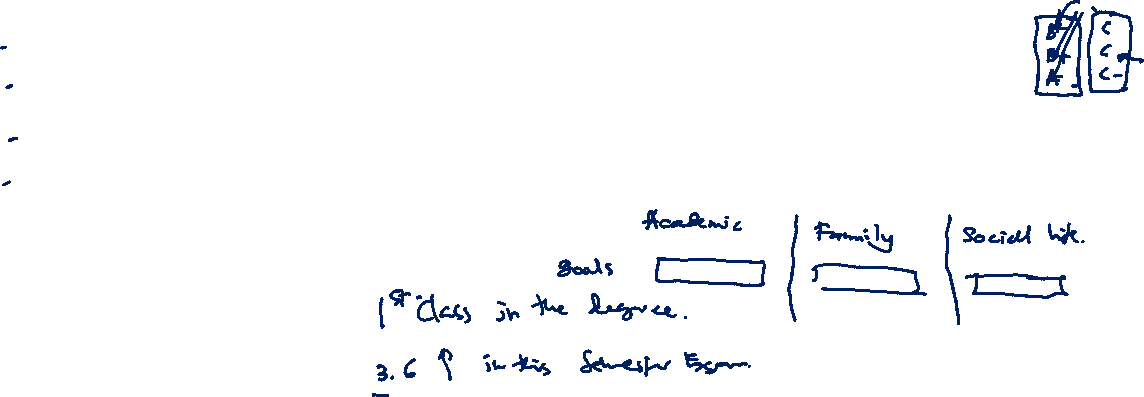 C
C
C-
Academic Family Social life.
Goals
1st Class in the degree.
3.6 ↑ in this Semester Exam.